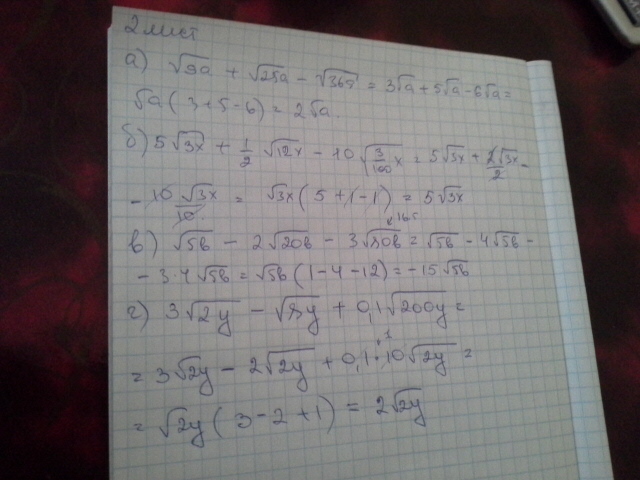 2 лист
а) √9a + √25a − √36a = 3√a + 5√a − 6√a =
√a ( 3 + 5 − 6 ) = 2√a.
б) 5√3x + 1/2 √12x − 10√(3/100 x) = 5√3x + 2√3x/2 −
− 10√3x/10 = √3x ( 5 + 1 − 1 ) = 5√3x
16·5
в) √5b − 2√20b − 3√80b = √5b − 4√5b −
− 3·4√5b = √5b ( 1 − 4 − 12 ) = −15√5b
г) 3√2y − √8y + 0,1√200y =
= 3√2y − 2√2y + 0,1·10√2y =
= √2y ( 3 − 2 + 1 ) = 2√2y